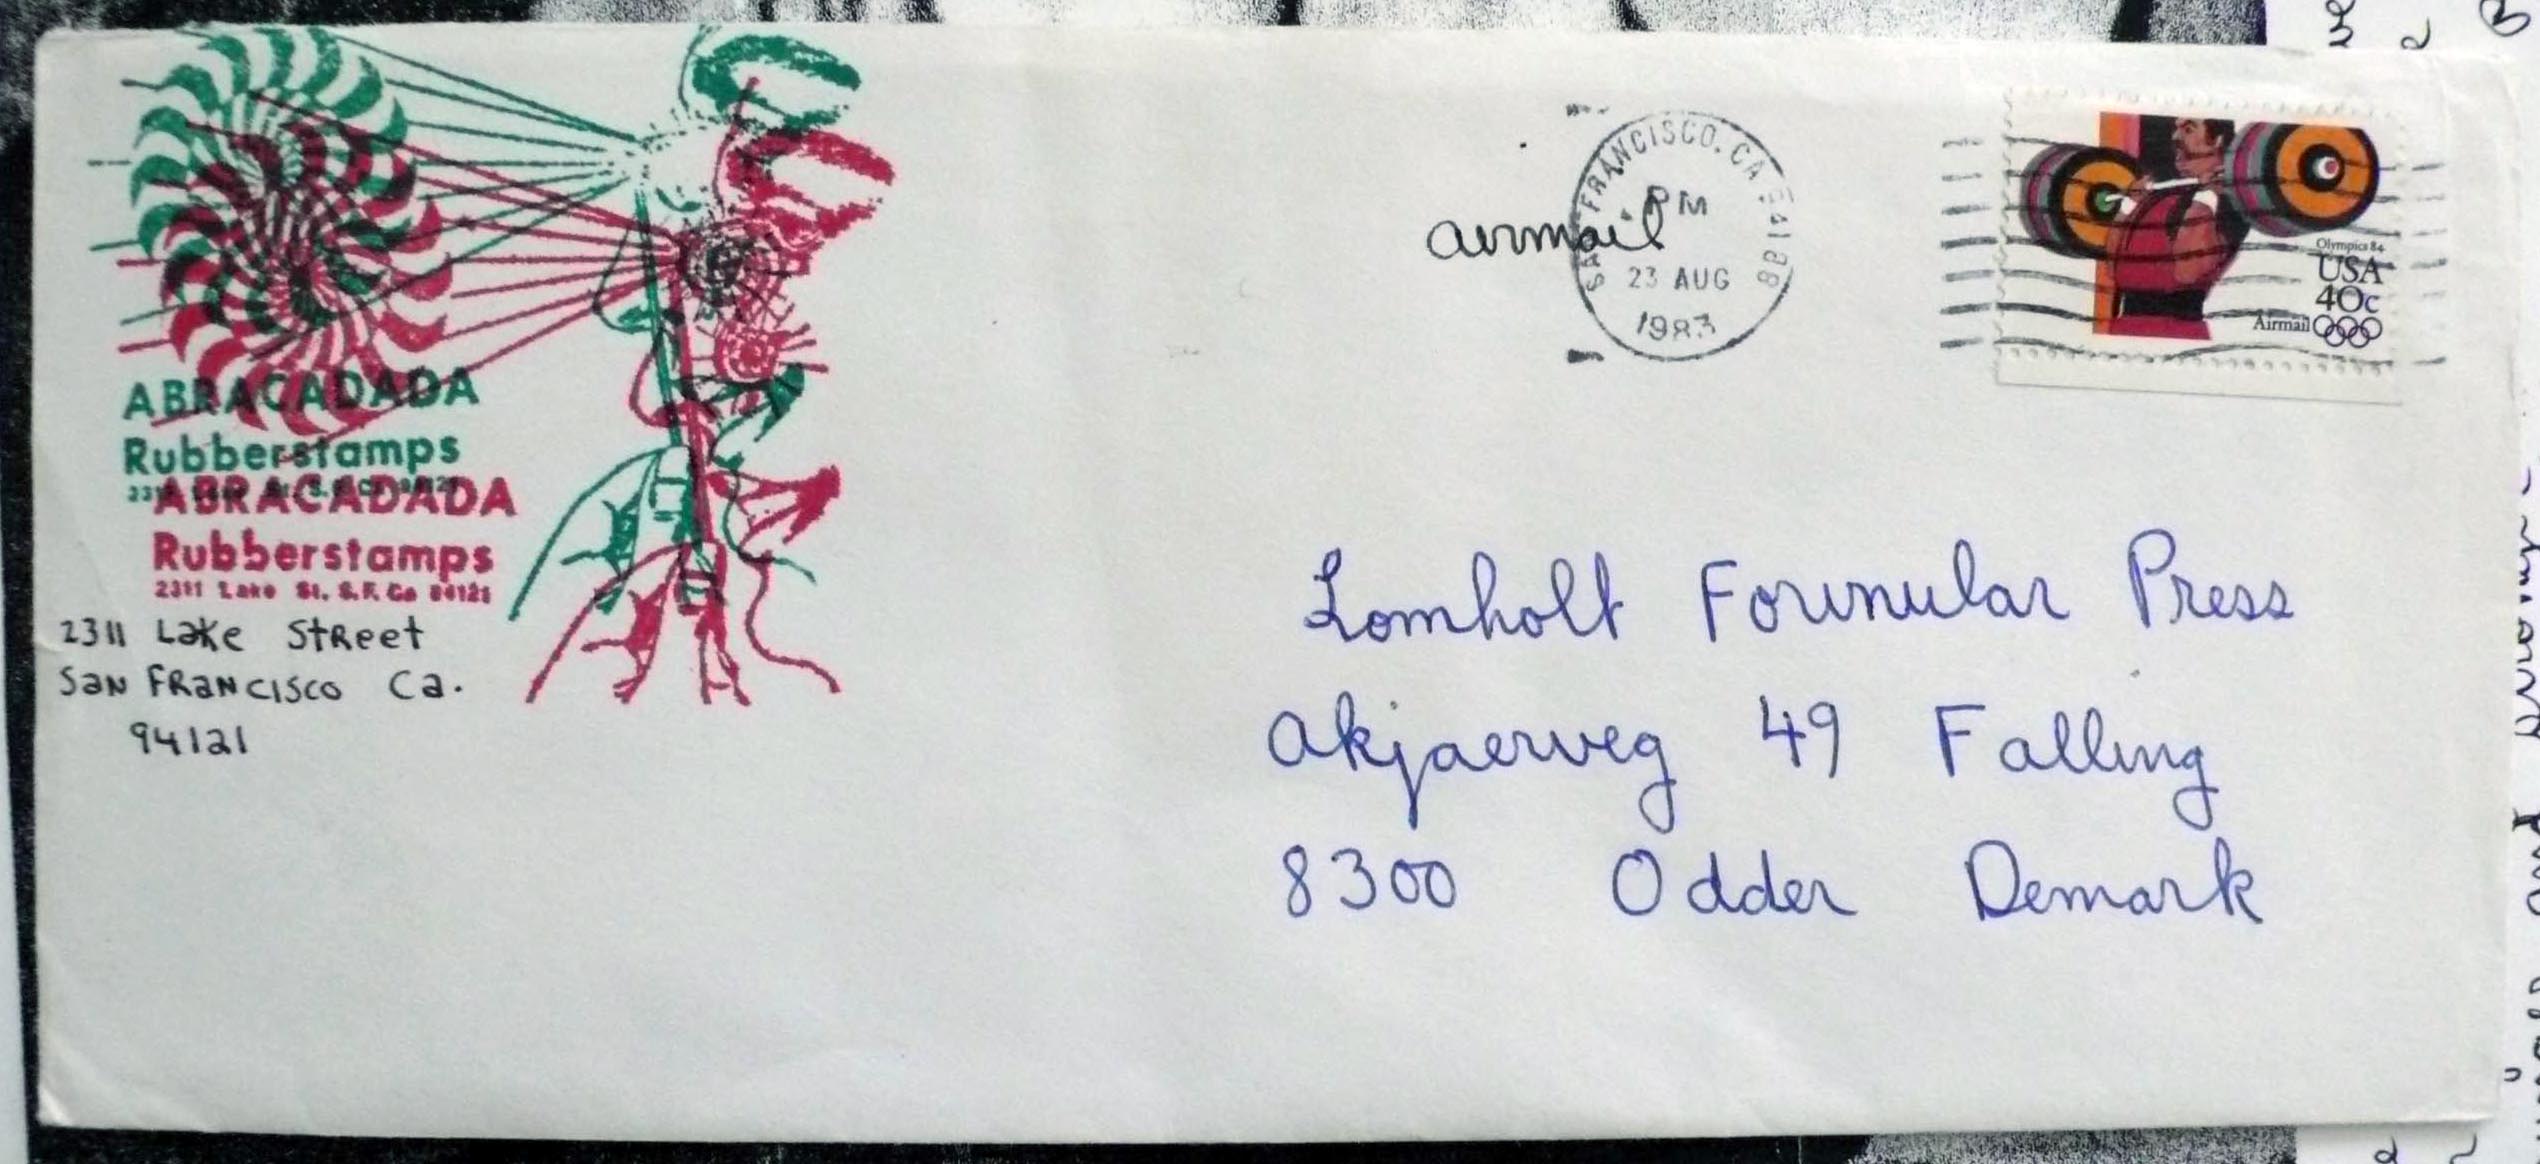 ABRACADADA
Rubberstamps
ABRACADADA
Rubberstamps
2311 Lake St. S.F. Ca 94121
2311 Lake Street
San Francisco Ca.
94121
airmail
SAN FRANCISCO, CA 941
PM
23 AUG
1983
Olympics 84
USA
40c
Airmail
Lomholt Formular Press
Akjaerveg 49 Falling
8300 Odder Demark